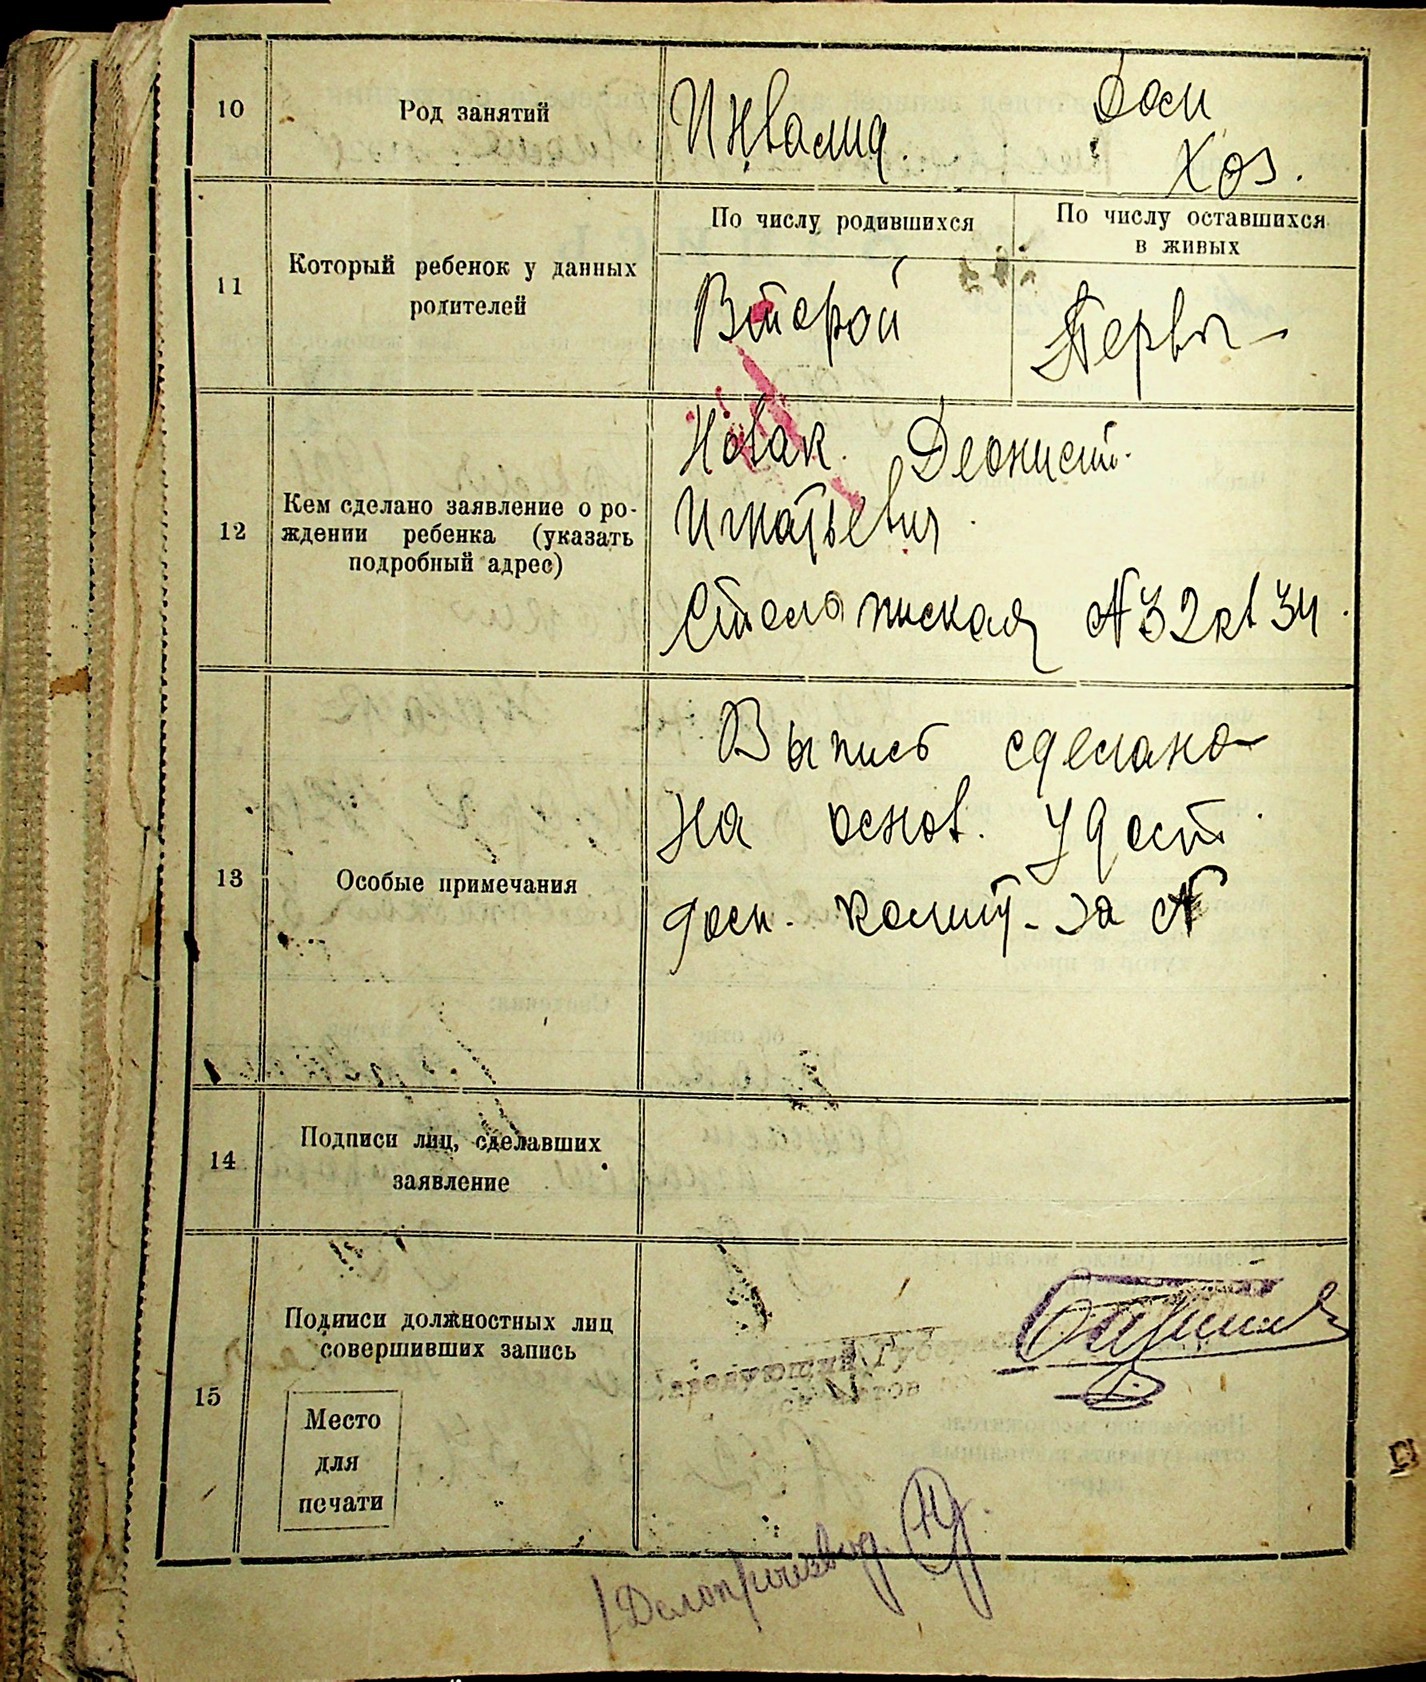 10
Род занятий
Инвалид.
Дом
Хоз.
11
Который ребенок у данных
родителей
По числу родившихся
По числу оставшихся
в живых
Второй
Первы
12
Кем сделано заявление о ро-
ждении ребенка (указать
подробный адрес)
Новак. Деонисий.
Игнатьевич.
№ 32 кв 34.
13
Особые примечания
Выпись сделана
на основ. удост.
домк. комит. за №
14
Подписи лиц, сделавших
заявление
15
Подписи должностных лиц
совершивших запись
Место
для
печати
Заведующий Губ
Делопроизвод.